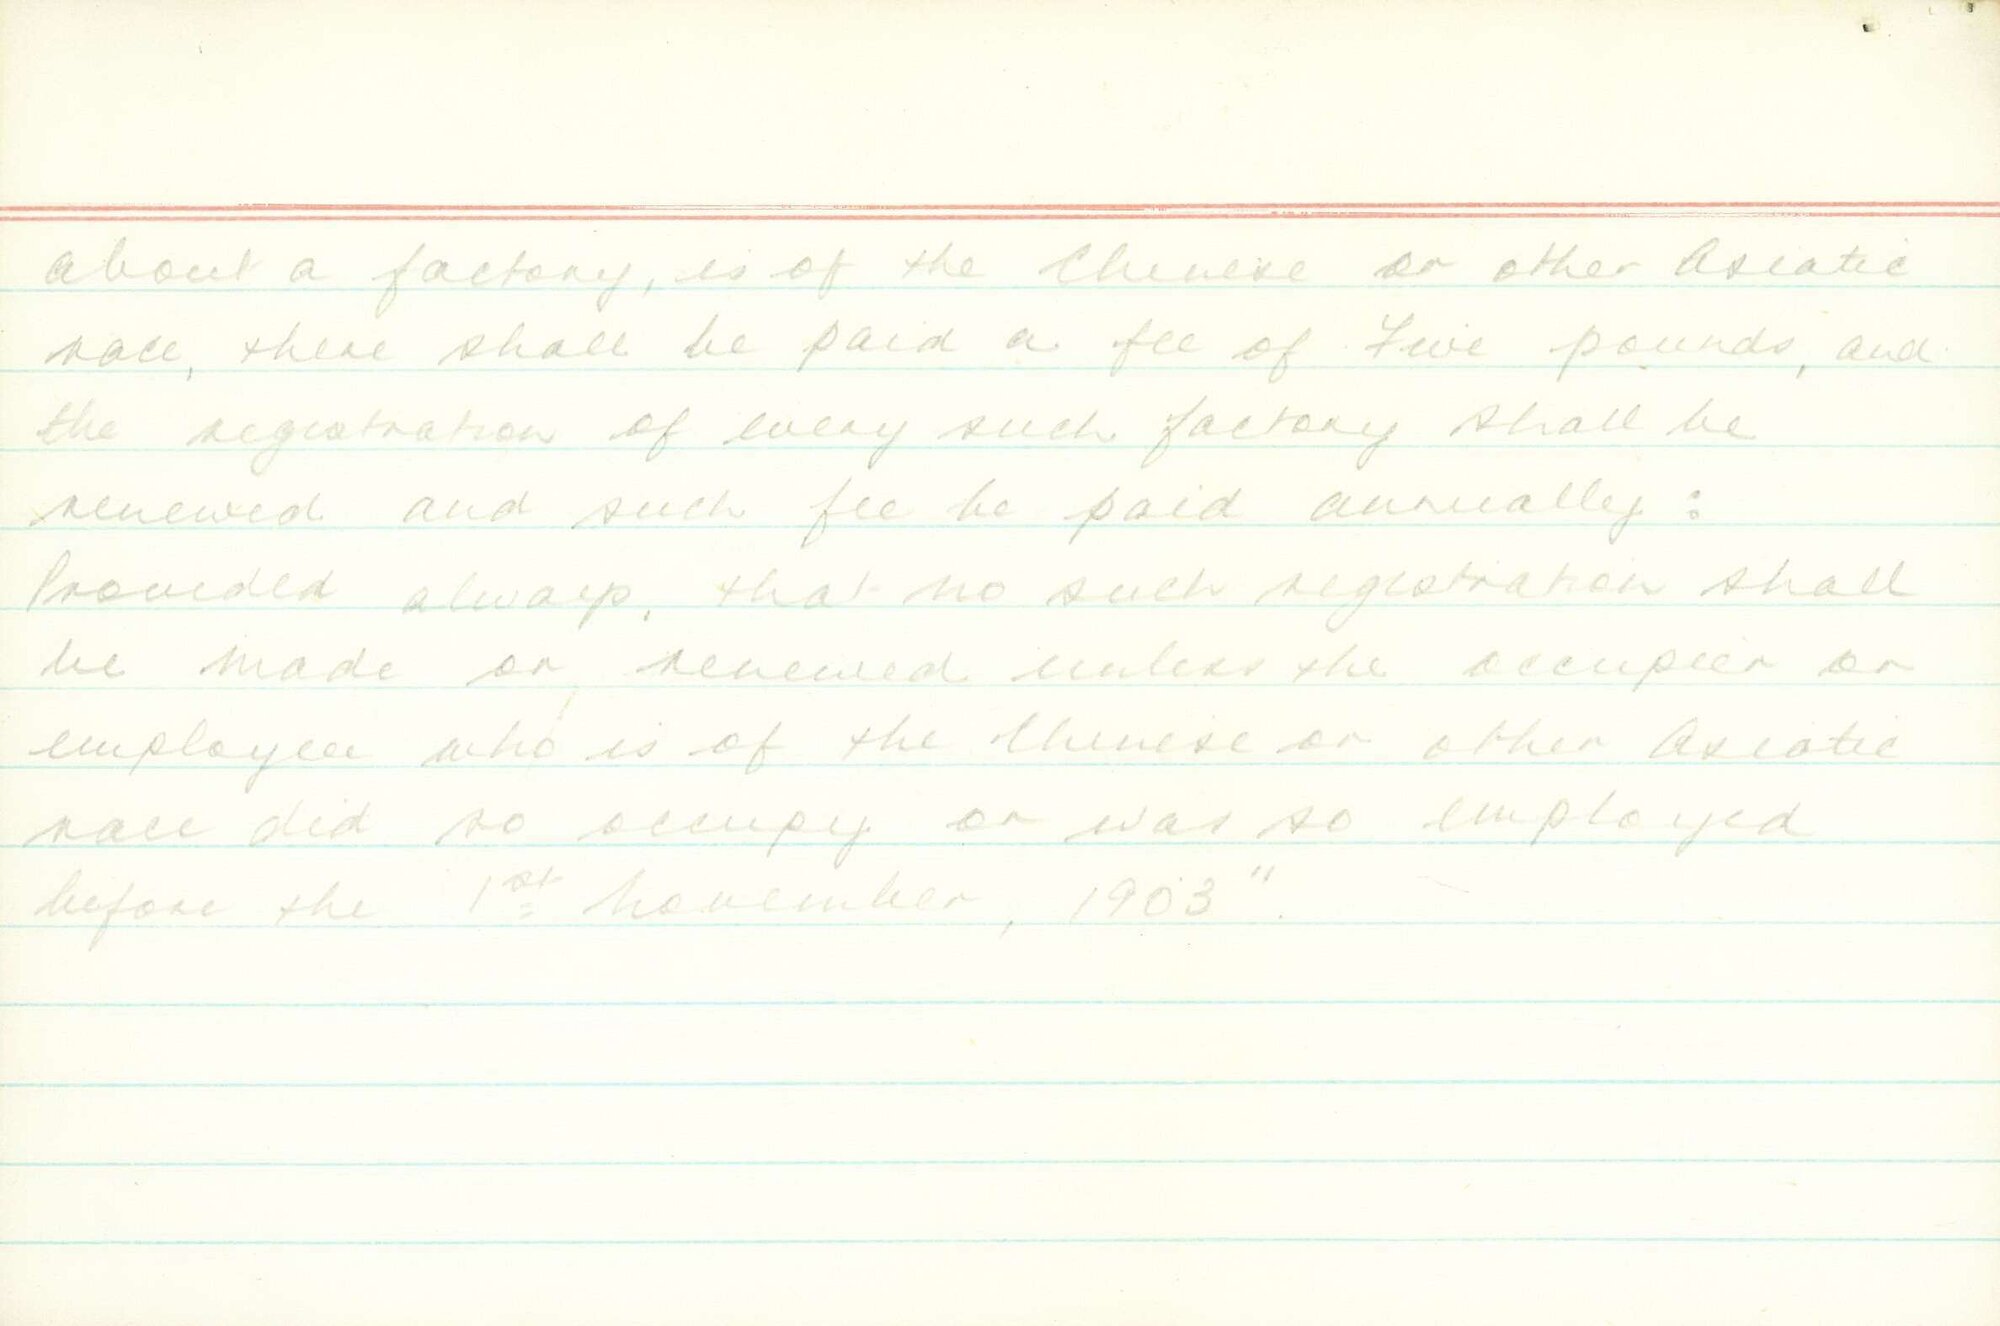 about a factory, is of the Chinese or other Asiatic
race, there shall be paid a fee of Five pounds, and
the registration of every such factory shall be
renewed and such fee be paid annually :
Provided always, that no such registration shall
be made or renewed unless the occupier or
employee who is of the Chinese or other Asiatic
race did so occupy or was so employed
before the 1st November, 1903".